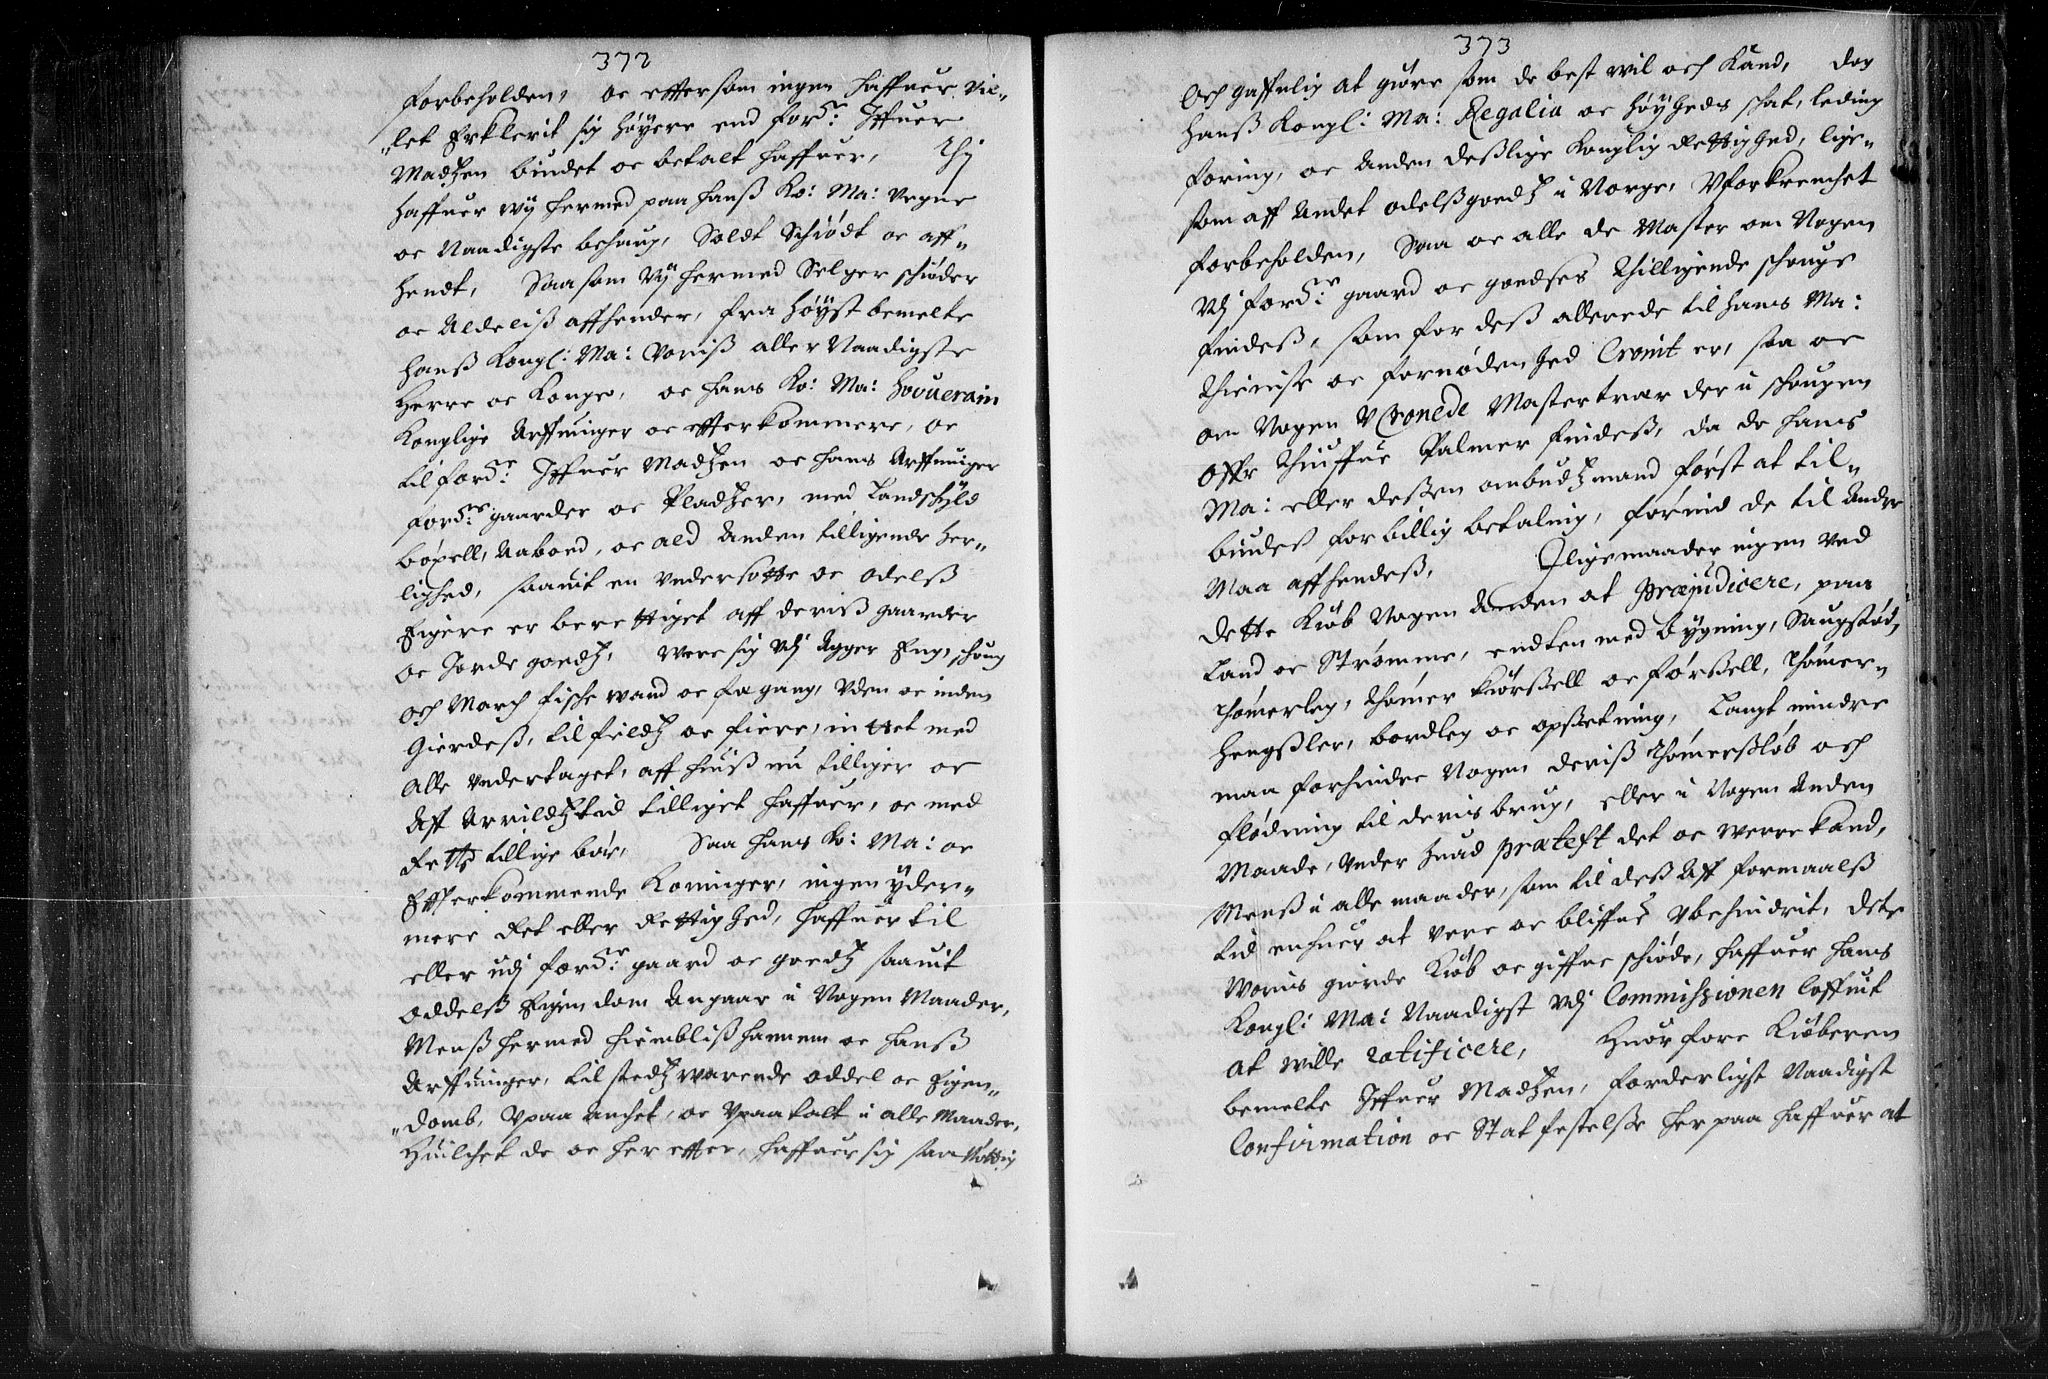 372
forbeholden, oc effter som ingen haffuer Vil¬
„let Erklerit sig høyere end fordⁿ: Iffuer
Madtzen biudet oc betalt haffuer, Thj
haffuer wij hermed paa hanß Ko: Ma: Vegne
oc Naadigste behaug, Soldt Schiødt oc aff¬
hendt, Saa som Vij hermed Selger schiøder
oc Aldeliß affhender, fra Høyst bemelte
hanß Kongl: Ma: Voriß aller Naadigste
Herre oc Konge, oc hans Ko: Ma: Souerain
Konglige Arffuinger oc effterkommere, oc
til fordⁿᵉ: Iffuer Madtzen oc hans Arffuinger
fordⁿᵉ: gaarder oc Pladtzer, med Landschyld
böxell, Aaboed, oc ald Anden tilligende Her¬
lighed, saauit en vndersotte oc odelß
Eigere er berettiget aff deriß gaarder
oc Jorde goedtz, Were sig Vdj Agger Eng, schoug
och March fische wand oc fægang, Vden oc inden
Gierdeß, til fieldtz oc fiere, inttet med
Alle vndertaget, aff huiß nu tilliger oc
Aff Arrildtztid tilliget haffuer, oc med
Rette tillige bör, Saa hans Ko: Ma: oc
Effterkommende Koninger, ingen yder¬
mere Ret eller Rettighed, haffuer til
eller udj fordⁿᵉ: gaard oc goedtz saauit
Oddelß Eigendom Angaar i Nogen Maader,
Menß hermed hiembliß hannem oc hanß
Arffuinger, til stedtzwarende oddel oc Eigen¬
„domb, Vpaa anchet, oc Vpaatalt i alle Maader,
Huilchet de oc her effter, haffuer sig saa Nöttig
373
Och gaffnlig at giøre som de best wil och Kand, dog
Hanß Kongl: Ma: Regalia oc Høyheds schat, leding
foring, oc Anden deßlige Konglig Rettighed, lige¬
som aff Andet odelßgoedtz i Norge, Vforkrenchet
forbeholden, Saa oc alle de Master om Nogen
Vdj fordⁿᵉ: gaard oc goedses Thilligende schouge
findeß, som for deß allerede til hans Ma:
Thieniste oc fornødenhed Cronit er, saa oc
om Nogen VCronede Mastertræer der i schougen
offr Thuffue Palmer findeß, da de hans
Ma: eller deßen ombudtzmand først at til¬
biudes for billig betaling, förind de til Andre
Maa affhendeß, Iligemaader ingen ved
dette Kiøb Nogen Anden at Præjudicere, paa
Land oc Strømme, endten med bygning, Saugstød,
Thømerleg, Thømer Kiörßell oc förßell, Thömer¬
Hengßler, bordleg oc opsetning, Langt mindre
maa forhindre Nogen deriß Thömerßløb och
flødning til deris brug, eller i Nogen Anden
Maade, Vnder Huad prætext det oc Werre kand,
Menß i alle maader, som til deß Aff formaalß
tid enhuer at Vere oc bliffue Vbehindrit, Dete
Woris giorde Kiøb oc giffne schiøde, haffuer hans
Kongl: Ma: Naadigst Vdj Commißionen Loffuit
at wille ratificere, Huorfore Kiøberen
bemelte Iffuer Madtzen, forderligst Naadigst
Confirmation oc Statfestelße her paa haffuer at